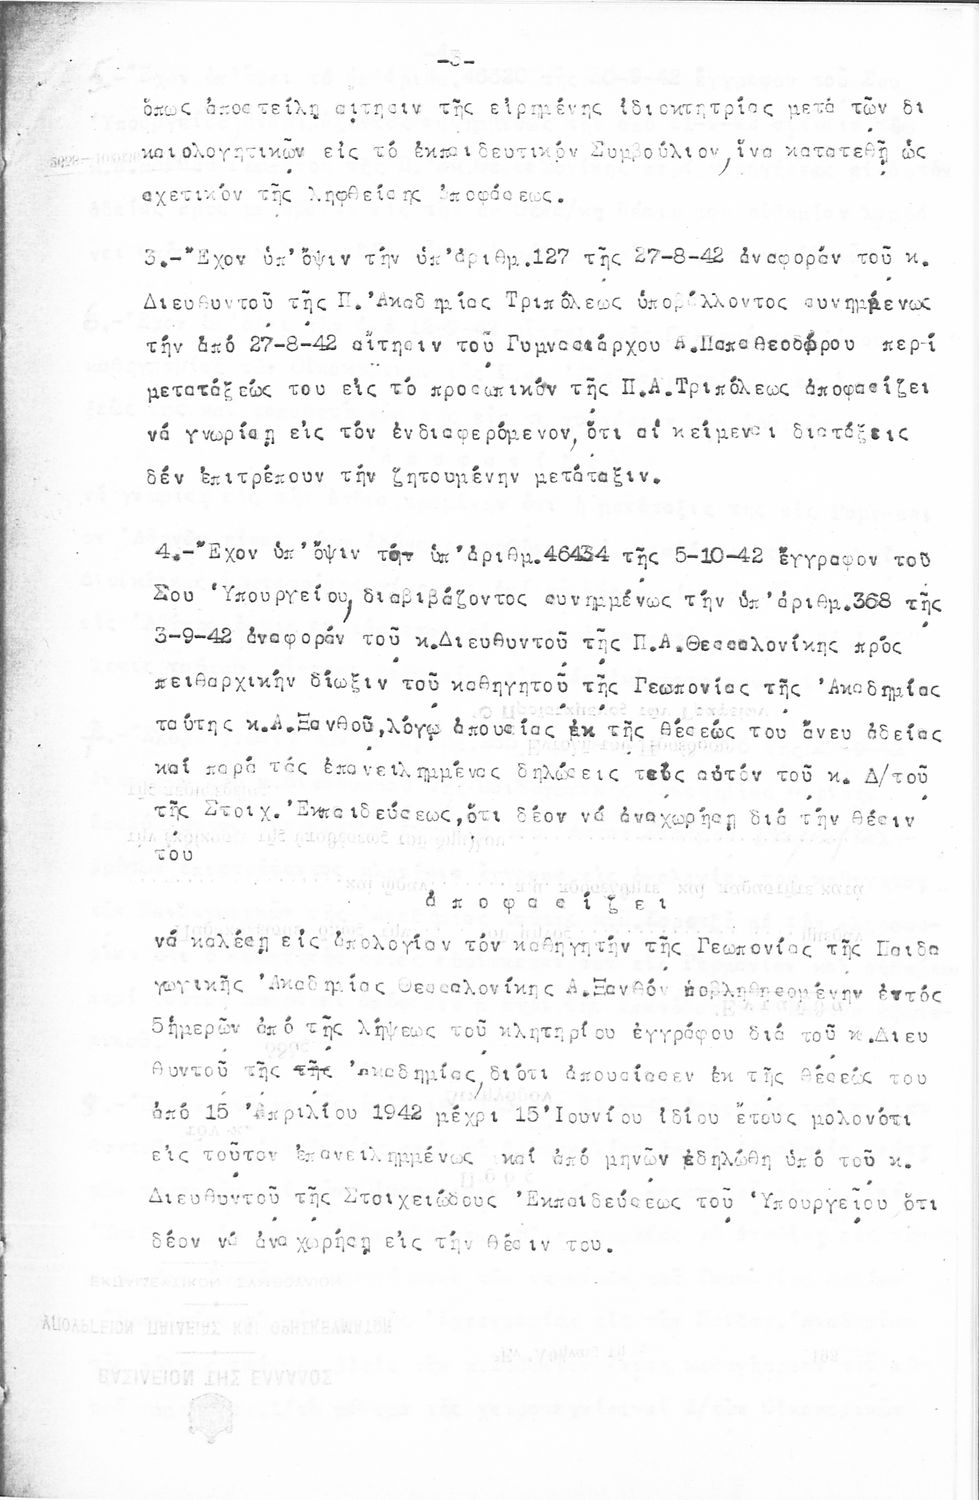 -3-
ὅπως ἀποστείλῃ αἴτησιν τῆς εἰρημένης ἰδιοκτητρίας μετά τῶν δι
καιολογητικῶν εἰς τό ἐκπαιδευτικόν Συμβούλιον, ἵνα κατατεθῇ ὡς
σχετικόν τῆς ληφθείσης ἀποφάσεως.
3.-Ἔχον ὑπ'ὄψιν τήν ὑπ'ἀριθμ.127 τῆς 27-8-42 ἀναφοράν τοῦ κ.
Διευθυντοῦ τῆς Π.Ἀκαδημίας Τριπόλεως ὑποβάλλοντος συνημμένως
τήν ἀπό 27-8-42 αἴτησιν τοῦ Γυμνασιάρχου Α.Παπαθεοδώρου περί
μετατάξεώς του εἰς τό προσωπικόν τῆς Π.Α.Τριπόλεως ἀποφασίζει
νά γνωρίσῃ εἰς τόν ἐνδιαφερόμενον, ὅτι αἱ κείμεναι διατάξεις
δέν ἐπιτρέπουν τήν ζητουμένην μετάταξιν.
4.-Ἔχον ὑπ'ὄψιν τό ὑπ'ἀριθμ.46434 τῆς 5-10-42 ἔγγραφον τοῦ
Σου Ὑπουργείου, διαβιβάζοντος συνημμένως τήν ὑπ'ἀριθμ.368 τῆς
3-9-42 ἀναφοράν τοῦ κ.Διευθυντοῦ τῆς Π.Α.Θεσσαλονίκης πρός
πειθαρχικήν δίωξιν τοῦ καθηγητοῦ τῆς Γεωπονίας τῆς Ἀκαδημίας
ταύτης κ.Α.Ξανθοῦ, λόγῳ ἀπουσίας ἐκ τῆς θέσεώς του ἄνευ ἀδείας
καί παρά τάς ἐπανειλημμένας δηλώσεις πρός αὐτόν τοῦ κ. Δ/τοῦ
τῆς Στοιχ.Ἐκπαιδεύσεως, ὅτι δέον νά ἀναχωρήσῃ διά τήν θέσιν
του
ἀ π ο φ α σ ί ζ ε ι
νά καλέσῃ εἰς ἀπολογίαν τόν καθηγητήν τῆς Γεωπονίας τῆς Παιδα
γωγικῆς Ἀκαδημίας Θεσσαλονίκης Α.Ξανθόν ὑποβληθησομένην ἐντός
5ἡμερῶν ἀπό τῆς λήψεως τοῦ κλητηρίου ἐγγράφου διά τοῦ κ.Διευ
θυντοῦ τῆς τῆς Ἀκαδημίας, διότι ἀπουσίασεν ἐκ τῆς θέσεώς του
ἀπό 15 Ἀπριλίου 1942 μέχρι 15 Ἰουνίου ἰδίου ἔτους μολονότι
εἰς τοῦτον ἐπανειλημμένως καί ἀπό μηνῶν ἐδηλώθη ὑπό τοῦ κ.
Διευθυντοῦ τῆς Στοιχειώδους Ἐκπαιδεύσεως τοῦ Ὑπουργείου ὅτι
δέον νά ἀναχωρήσῃ εἰς τήν θέσιν του.